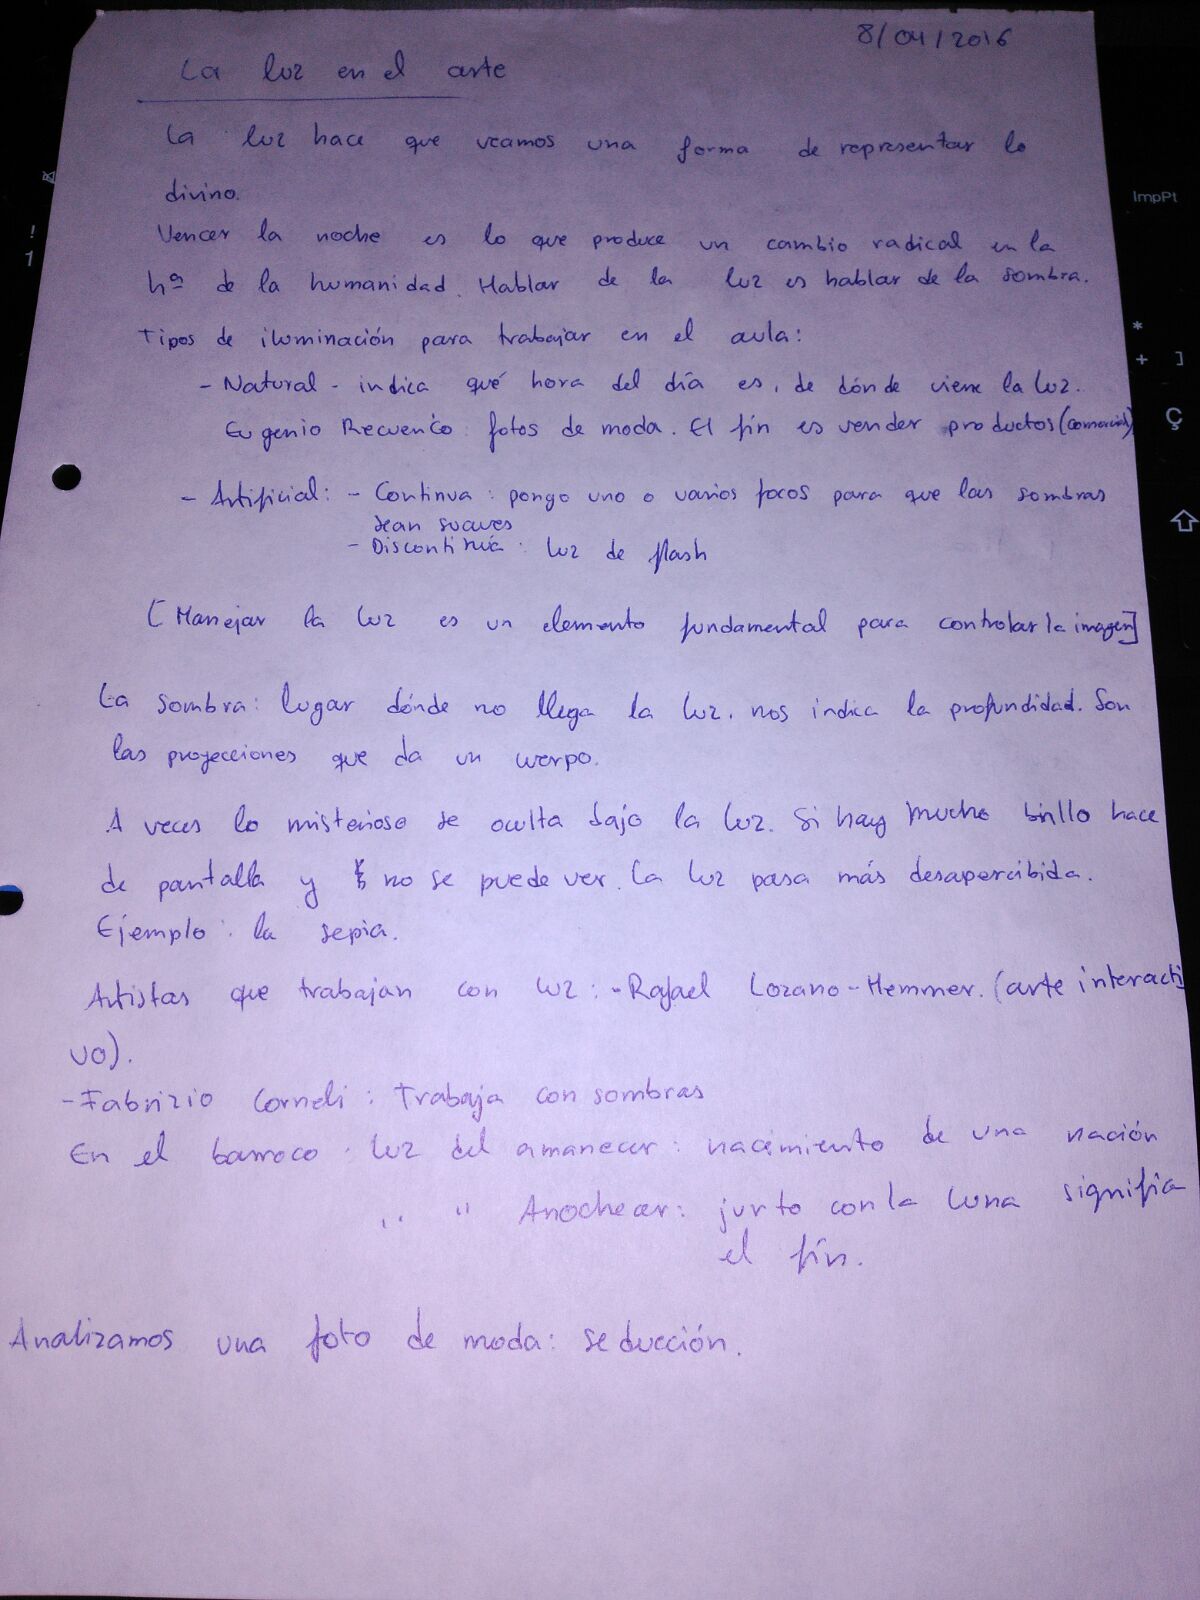 8/04/2016
La luz en el arte
La luz hace que veamos una forma de representar lo
divino.
Vencer la noche es lo que produce un cambio radical en la
hª de la humanidad. Hablar de la luz es hablar de la sombra.
Tipos de iluminación para trabajar en el aula:
- Natural - indica qué hora del día es, de dónde viene la luz.
Eugenio Recuenco: fotos de moda. El fin es vender productos (comercial)
- Artificial: - Continua: pongo uno o varios focos para que las sombras
sean suaves
- Discontinua: luz de flash
[Manejar la luz es un elemento fundamental para controlar la imagen]
La sombra: lugar dónde no llega la luz. nos indica la profundidad. Son
las proyecciones que da un cuerpo.
A veces lo misterioso se oculta bajo la luz. Si hay mucho brillo hace
de pantalla y no se puede ver. La luz pasa más desapercibida.
Ejemplo: la sepia.
Artistas que trabajan con luz: - Rafael Lozano-Hemmer. (arte interacti
vo).
- Fabrizio Corneli: Trabaja con sombras
En el barroco: luz del amanecer: nacimiento de una nación
" " Anochecer: junto con la luna significa
el fin.
Analizamos una foto de moda: seducción.
ImpPt
!
1
*
+ ]
Ç